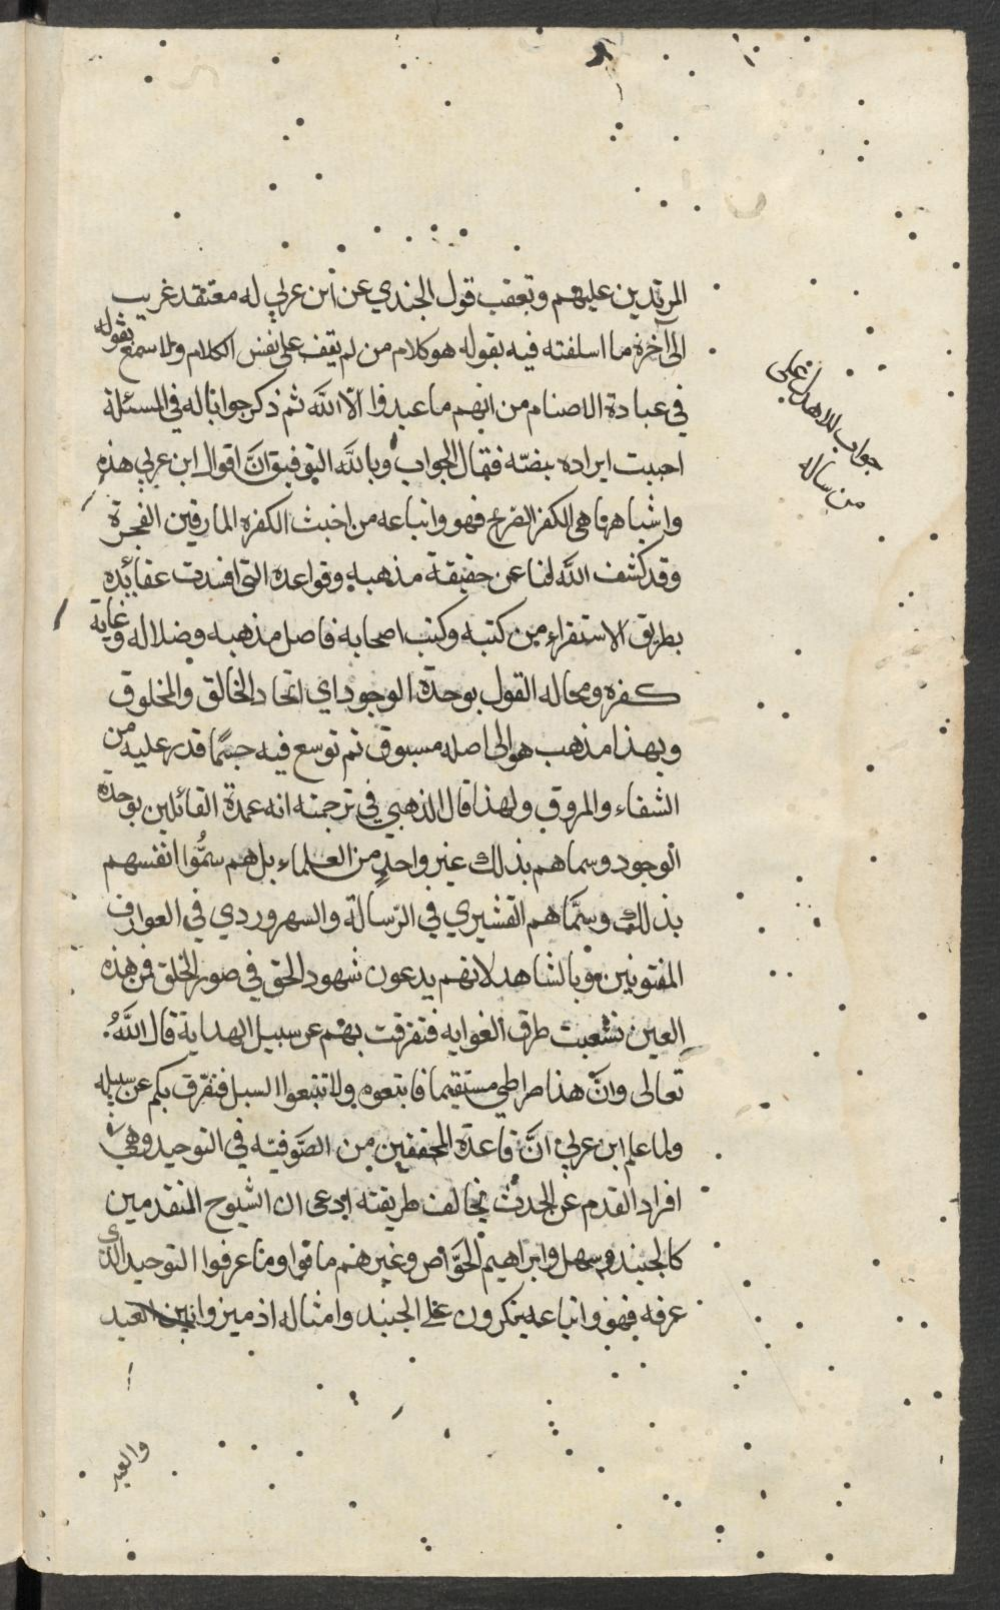 المرتدين عليهم وتعقب قول الجندي عن ابن عربي له معتقد غريب
الى آخره ما اسلفته فيه بقوله هو كلام من لم يقف على نفس الكلام ولا سمع بقوله
في عبادة الاصنام من انهم ما عبدوا الا الله ثم ذكر جوابا له في المسئلة
احببت ايراده بنصّه فقال الجواب وبالله التوفيق انّ اقوال ابن عربي هذه
واشباهها هي الكفر الصريح فهو واتباعه من اخبث الكفره المارقين الفجرة
وقد كشف الله لنا عن حقيقة مذهبه وقواعده التي افسدت عقائده
بطريق الاستقراء من كتبه وكتب اصحابه فاصل مذهبه وضلاله وغاية
كفره ومحاله القول بوحدة الوجود اي اتحاد الخالق والمخلوق
وبهذا مذهب هو الى اصله مسبوق ثم توسع فيه حسبما قدر عليه من
الشقاء والمروق ولهذا قال الذهبي في ترجمته انه عمدة القائلين بوحدة
الوجود وسماهم بذلك غير واحدٍ من العلماء بل هم سمُّوا انفسهم
بذلك وسمّاهم القشيري في الرسالة والسهروردي في العوارف
المفتونين بالشاهد لانهم يدعون شهود الحق في صور الخلق فمن هذه
العين تشعبت طرق الغوايه فتفرقت بهم عن سبيل الهداية قال اللهُ
تعالى وانّ هذا صراطي مستقيما فاتبعوه ولا تتبعوا السبل فتفرّق بكم عن سبيله
ولما علم ابن عربي انَّ قاعدة المحققين من الصّوفيّه في التوحيد وهي
افراد القدم عن الحدث تخالف طريقته ادعى ان الشيوخ المتقدمين
كالجنيد وسهل وابراهيم الخوّاص وغيرهم ماتوا وما عرفوا التوحيد الذي
عرفه فهو واتباعه ينكرون على الجنيد وامثاله اذ ميزوا بين العبد
والعبد
جواب للاهدل
من رساله